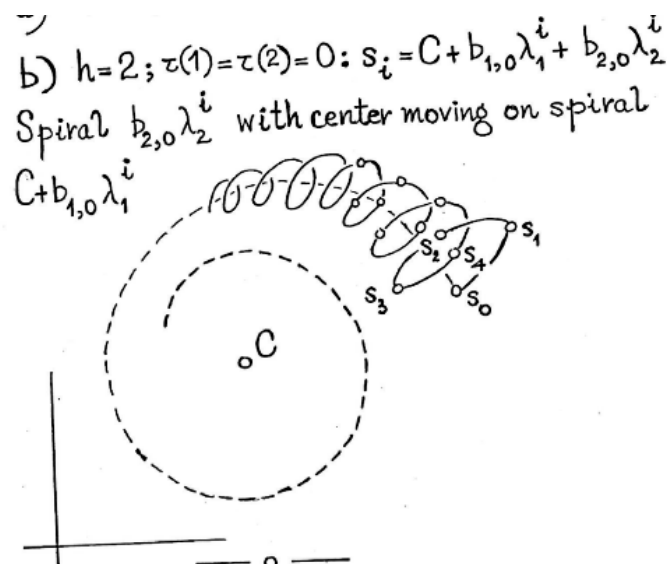 b) h=2; τ(1)=τ(2)=0: s_i=C+b_{1,0}λ_1^i+ b_{2,0}λ_2^i
Spiral b_{2,0}λ_2^i with center moving on spiral
C+b_{1,0}λ_1^i
S_1
S_2
S_4
S_3
S_0
C